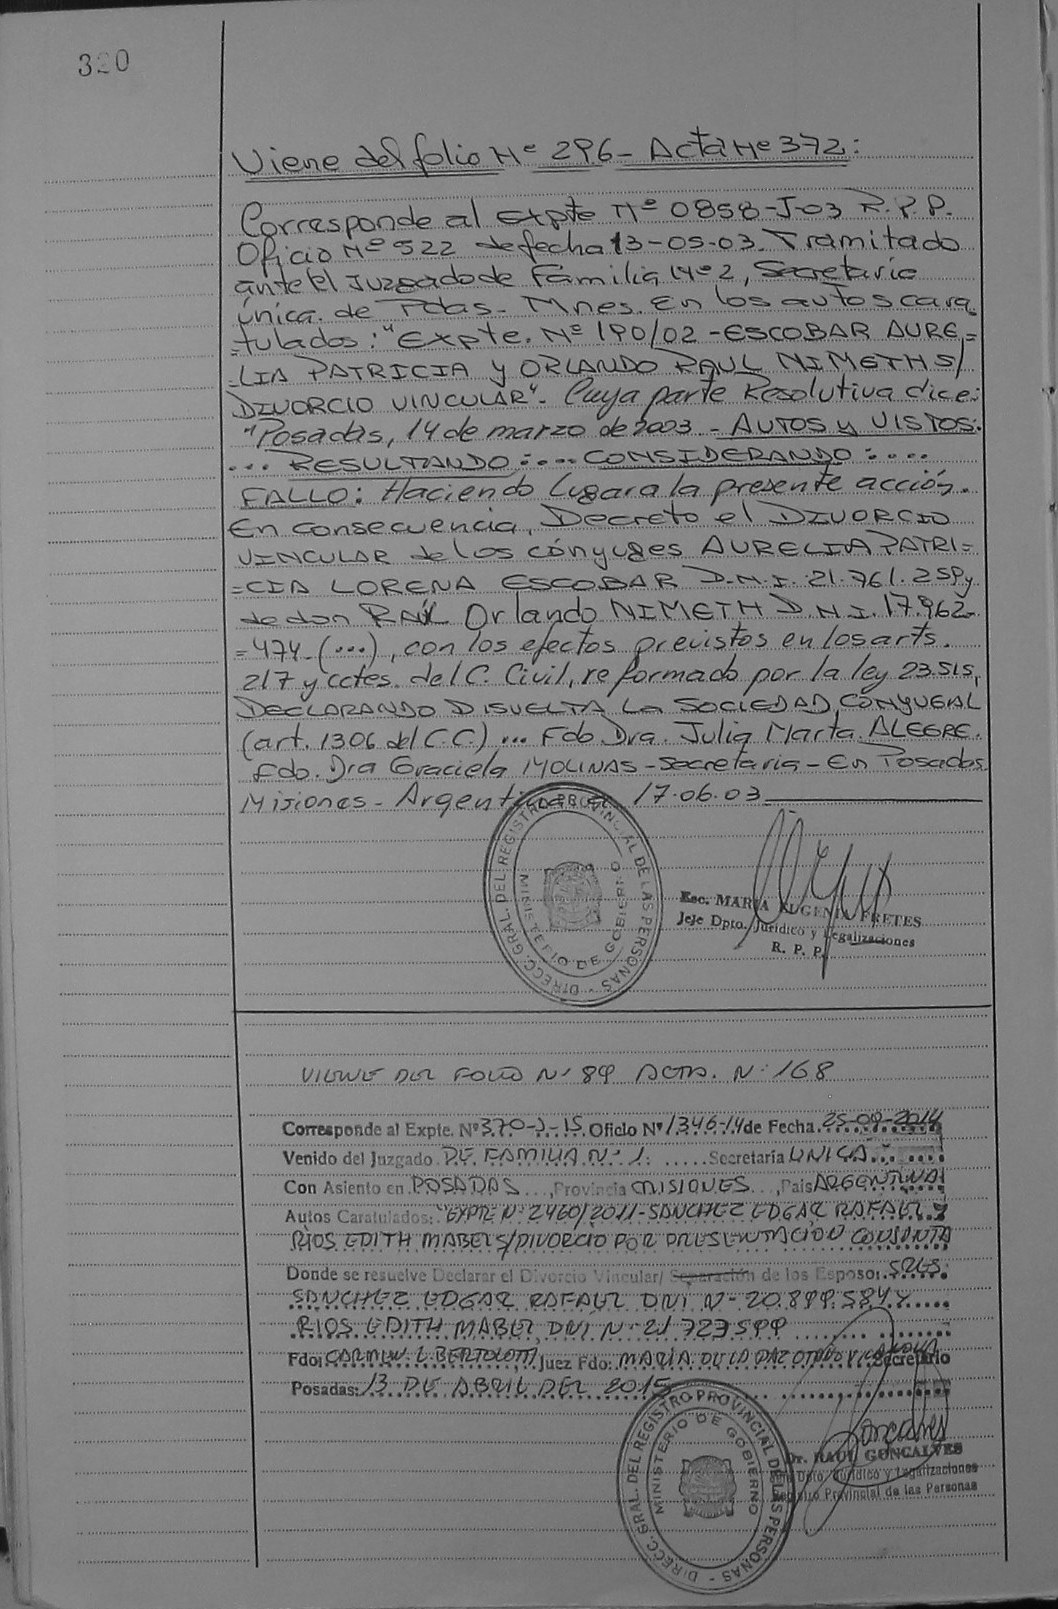 320
Viene del folio Nº 296 - Acta Nº 372:
Corresponde al Expte Nº 0858-J-03 R.P.P.
Oficio Nº 522 de fecha 13-05-03. Tramitado
ante el Juzgado de Familia Nº 2, Secretaria
única. de Pdas. Mnes. En los autos cara
=tulados: "Expte. Nº 190/02 - ESCOBAR AURE=
=LIA PATRICIA y ORLANDO RAUL NIMETH S/
DIVORCIO VINCULAR". Cuya parte Resolutiva dice:
"Posadas, 14 de marzo de 2003 - AUTOS y VISTOS:
... RESULTANDO:... CONSIDERANDO:....
FALLO: Haciendo lugar a la presente acción.
En consecuencia, Decreto el DIVORCIO
VINCULAR de los cónyuges AURELIA PATRI=
=CIA LORENA ESCOBAR D.N.I. 21.761.259 y
de don RAÚL Orlando NIMETH D.N.I. 17.962.
=474 (...), con los efectos previstos en los arts.
217 y cctes. del C. Civil, reformado por la ley 23.515,
DECLARANDO DISUELTA LA SOCIEDAD CONYUGAL
(art. 1306 del C.C.) ... Fdo. Dra. Julia Marta ALEGRE.
Fdo. Dra Graciela MOLINAS - Secretaria - En Posadas
Misiones - Argentina a 17.06.03
DIRECC. GRAL. DEL REGISTRO PROVINCIAL DE LAS PERSONAS -
MINISTERIO DE GOBIERNO
Esc. MARIA EUGENIA FRETES
Jefe Dpto. Jurídico y Legalizaciones
R. P. P.
VIENE DEL FOLIO Nº 89 ACTA. Nº 168
Corresponde al Expte. Nº 370-J-15 Oficio Nº 1346-14 de Fecha 25-09-2014
Venido del Juzgado DE FAMILIA Nº 1. Secretaria UNICA
Con Asiento en POSADAS, Provincia MISIONES, Pais ARGENTINA
Autos Caratulados: "EXPTE Nº 2460/2011-SANCHEZ EDGAR RAFAEL Y
RIOS EDITH MABEL S/DIVORCIO POR PRESENTACION CONJUNTA
Donde se resuelve Declarar el Divorcio Vincular/ Separación de los Esposos SRES.
SANCHEZ EDGAR RAFAEL DNI Nº 20.899.584 Y
RIOS EDITH MABEL, DNI Nº 21.723599
Fdo: CARMEN L BERTOLOTTI Juez Fdo: MARIA DE LA PAZ Secretario
Posadas: 13 DE ABRIL DEL 2015
DIRECC. GRAL. DEL REGISTRO PROVINCIAL DE LAS PERSONAS -
MINISTERIO DE GOBIERNO
Dr. RAUL GONCALVES
Dpto. Jurídico y Legalizaciones
Registro Provincial de las Personas